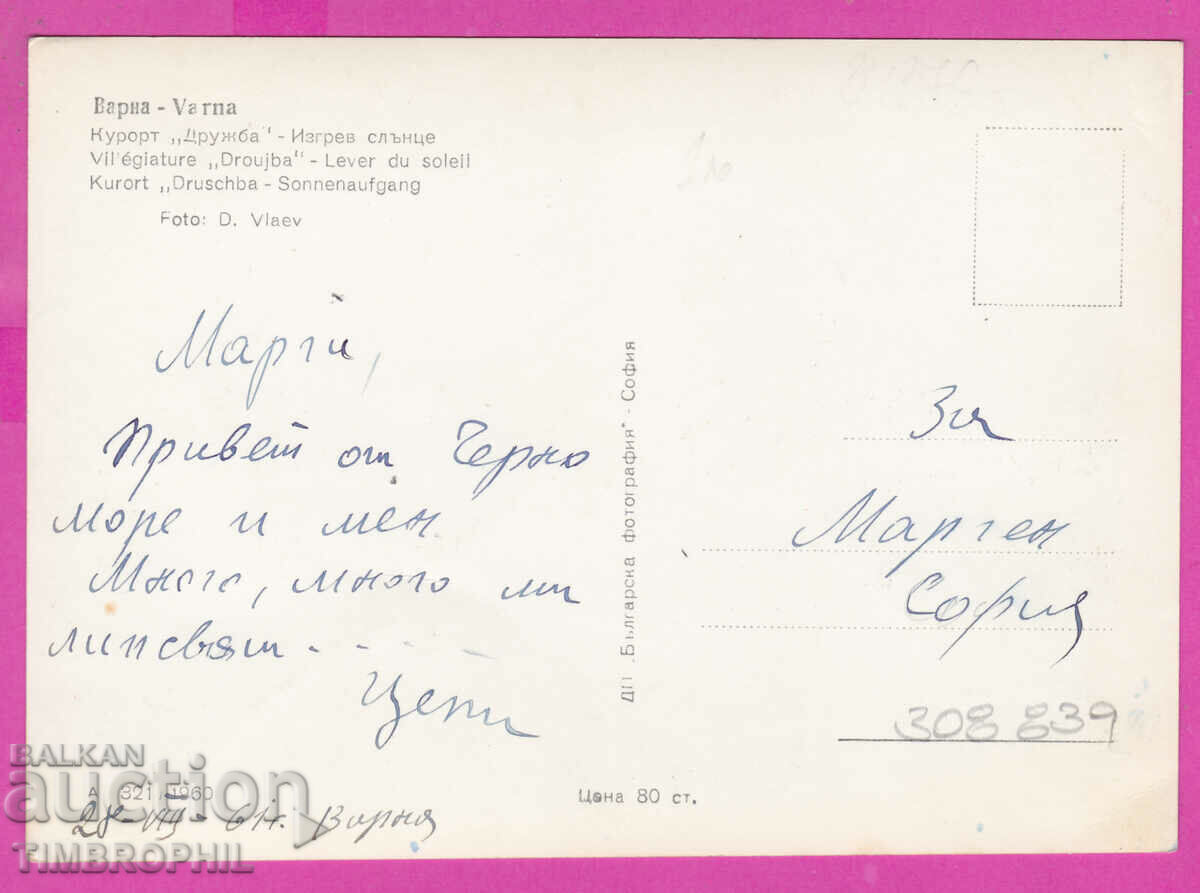 Варна - Varna
Курорт „Дружба" - Изгрев слънце
Vil'égiature „Droujba" - Lever du soleil
Kurort „Druschba - Sonnenaufgang
Foto: D. Vlaev
Марги,
Привет от Черно
море и мен.
Много, много ми
липсвяш . . . .
Цети
А 321 1960
28-VIII-61г. Варна
ДП „Българска фотография" - София
Цена 80 ст.
За
Марген
София
308 839
BALKAN
auction
TIMBROPHIL